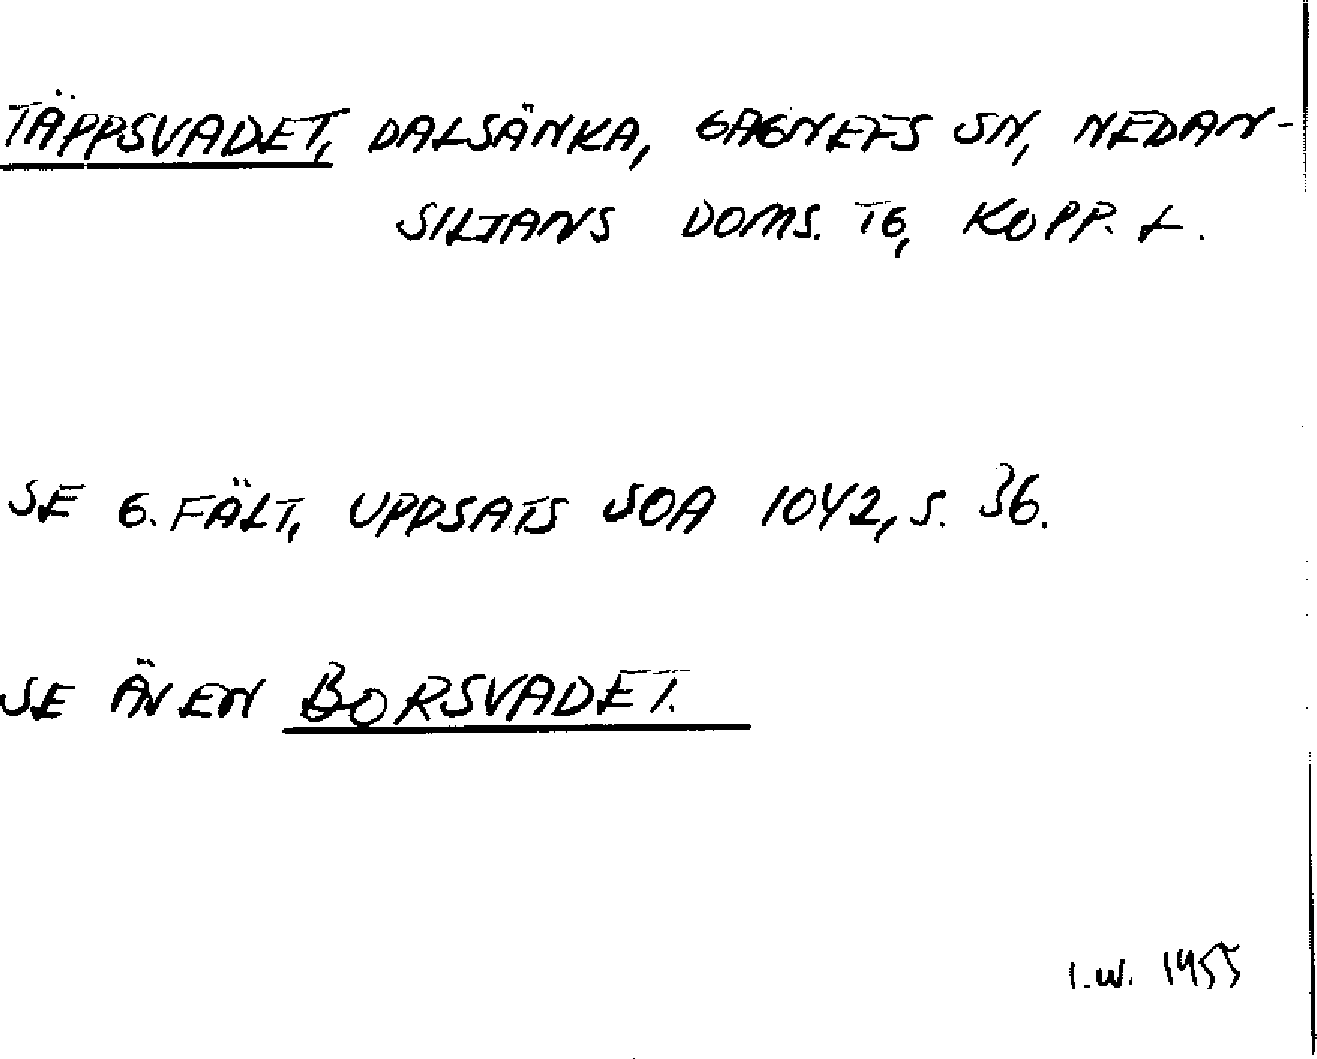 TÄPPSVADET, DALSÄNKA, GAGNEFS SN, NEDAN-
SILJANS DOMS. TG, KOPP. L.
SE G. FÄLT, UPPSATS SOA 1042, S. 36.
SE ÄVEN BORSVADET.
I.W. 1955